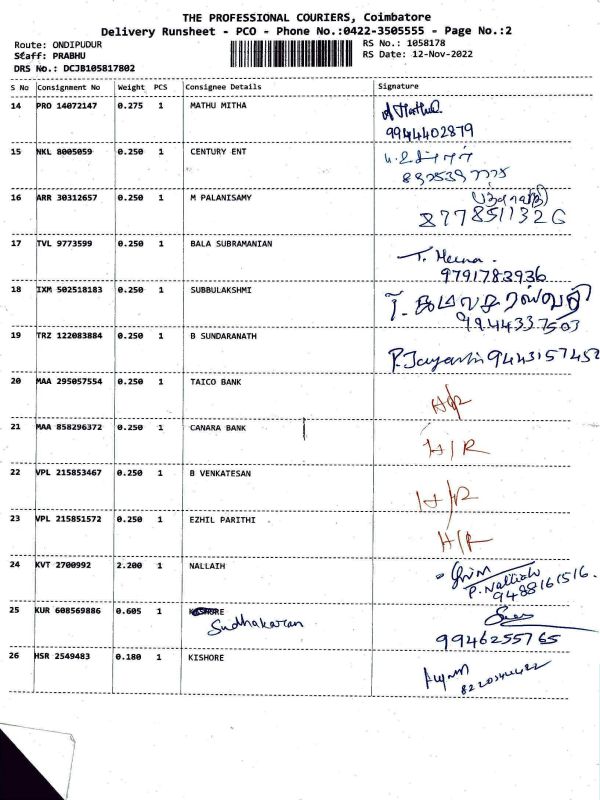 THE PROFESSIONAL COURIERS, Coimbatore
Delivery Runsheet - PCO - Phone No.:0422-3505555 - Page No.:2
Route: ONDIPUDUR RS No.: 1058178
Staff: PRABHU RS Date: 12-Nov-2022
DRS No.: DCJB105817802
S No Consignment No Weight PCS Consignee Details Signature
14 PRO 14072147 0.275 1 MATHU MITHA
9944402879
15 NKL 8005059 0.250 1 CENTURY ENT
16 ARR 30312657 0.250 1 M PALANISAMY
8778511326
17 TVL 9773599 0.250 1 BALA SUBRAMANIAN T. Meena.
9791783936
18 IXM 502518183 0.250 1 SUBBULAKSHMI
9944337503
19 TRZ 122083884 0.250 1 B SUNDARANATH
9443157452
20 MAA 295057554 0.250 1 TAICO BANK H/R
21 MAA 858296372 0.250 1 CANARA BANK H/R
22 VPL 215853467 0.250 1 B VENKATESAN H/R
23 VPL 215851572 0.250 1 EZHIL PARITHI H/R
24 KVT 2700992 2.200 1 NALLAIH
P. Nalliah
9488161516.
25 KUR 608569886 0.605 1 KISHORE
Sudhakaran
9946255765
26 HSR 2549483 0.180 1 KISHORE